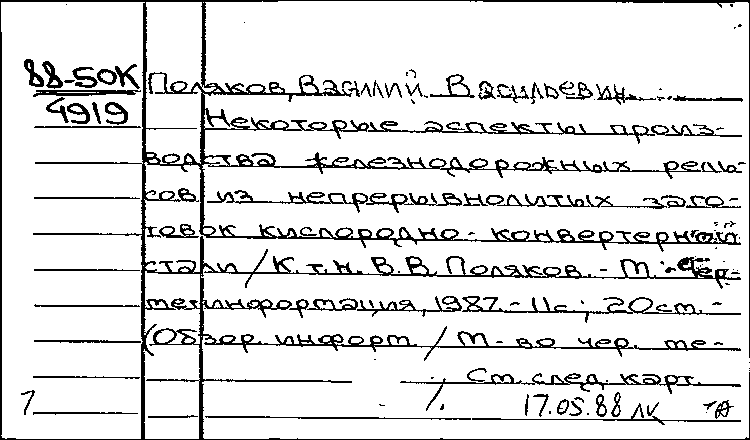 88-50К Поляков, Василий Васильевич.
4919 Некоторые аспекты произ-
водства железнодорожных рель-
сов из непрерывнолитых заго-
товок кислородно-конвертерной
стали / К.т.н. В.В. Поляков. - М.: Чер-
метинформация, 1987. - 11с; 20см. -
(Обзор. информ. / М-во чер. ме-
См. след. карт.
1 17.05.88 ЛК